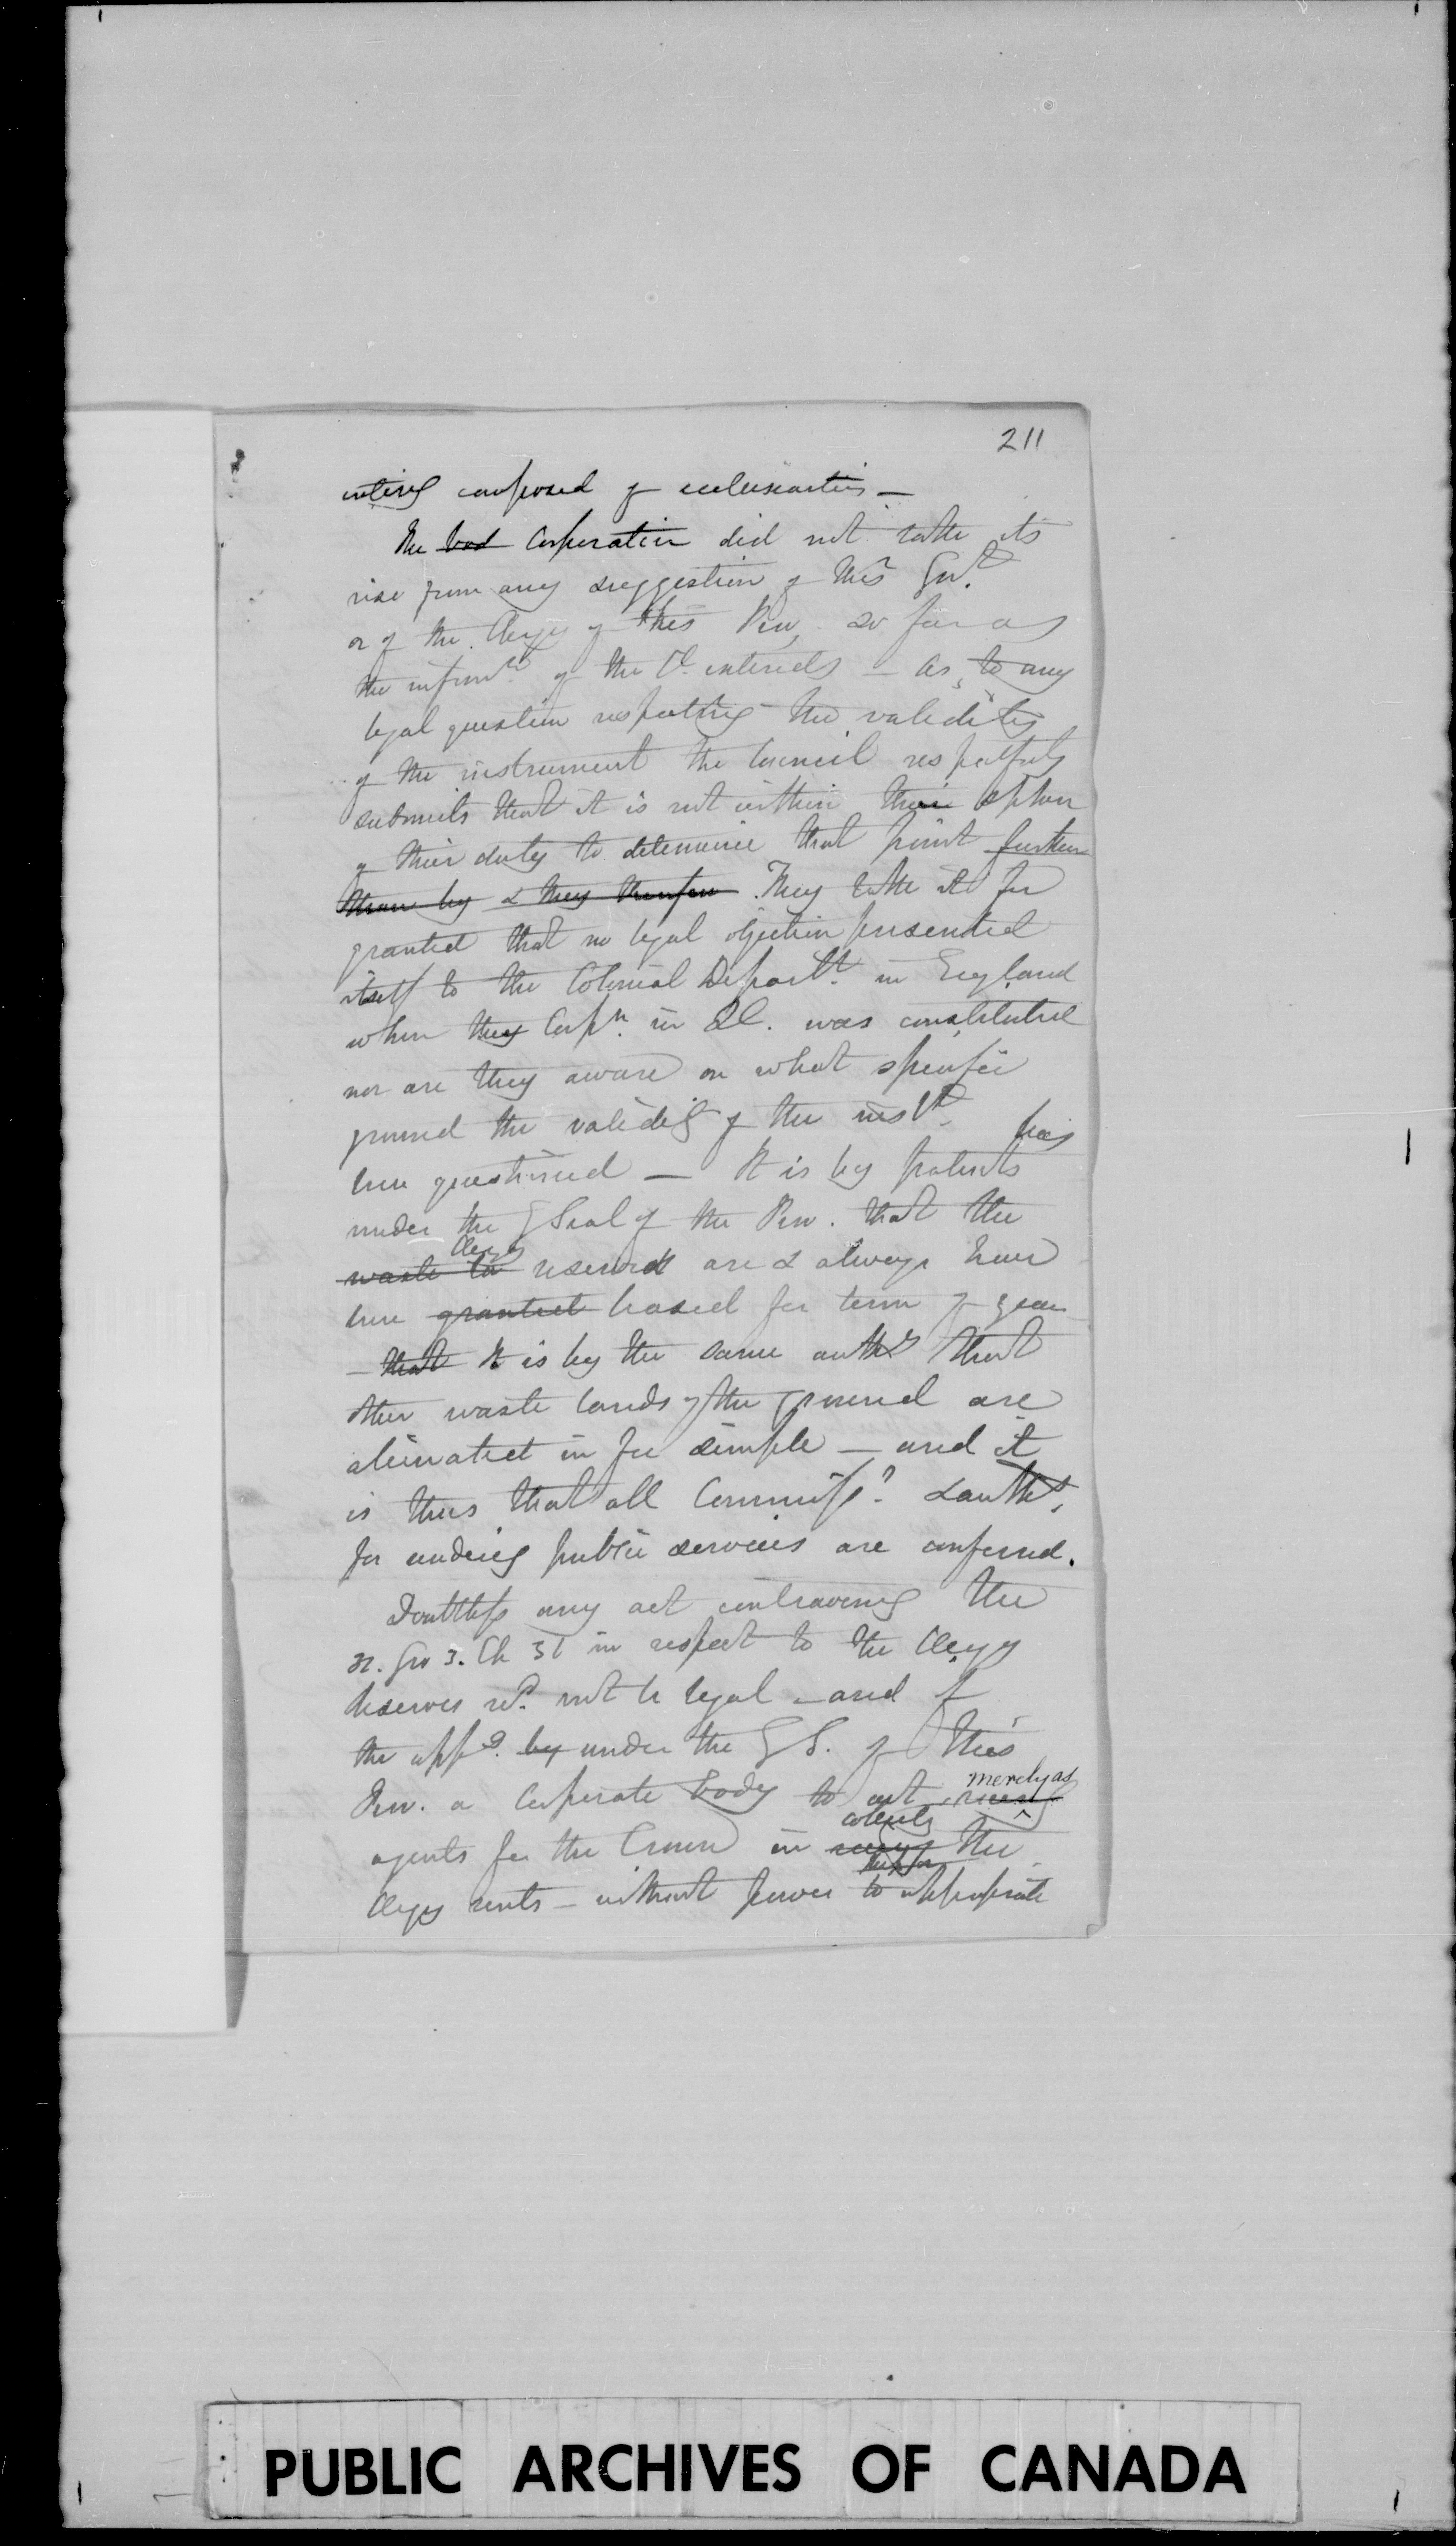 211
entirely composed of ecclesiastics —
The bod Corporation did not take its
rise from any suggestion of this Govt.
or of the Clergy of this Prov. so far as
the informn. of the Cl. extends — As to any
legal question respecting the validity
of the instrument the Council respectfully
submits that it is not within their sphere
of their duty to determine that point further
than by & they therefore They take it for
granted that no legal objection presented
itself to the Colonial Departt. in England
when they Corpn. in LC. was constituted
nor are they aware on what specific
ground the validity of the inst. has
been questioned — It is by patents
under the G Seal of the Prov. that the
Clergy
waste la reserves are & always have
been granted leased for term of years
— that It is by the same authy that
other waste lands of the Crown are
alienated in fee simple — and it
is thus that all Commissns. & authy.
for rendering public services are conferred.
Doubtless any act contravening the
31. Geo 3. Ch 31 in respect to the Clergy
Reserves wd. not be legal — and if
the appt. by under the G S. of this
merely as
Prov. a Corporate body to act
collecting
agents for the Crown in the
Clergy rents — without power to appropriate
PUBLIC ARCHIVES OF CANADA